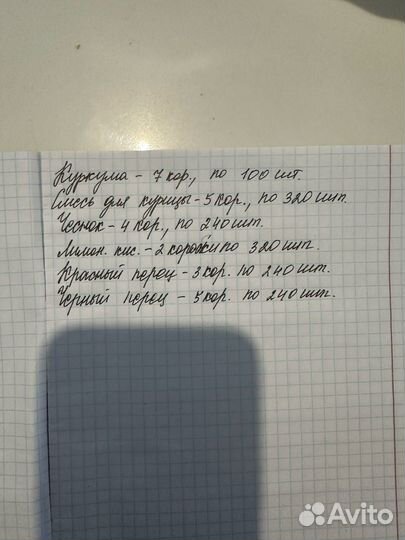 Куркума - 7 кор., по 100 шт.
Смесь для курицы - 5 кор., по 320 шт.
Чеснок - 4 кор., по 240 шт.
Лимон. кис. - 2 коробки по 320 шт.
Красный перец - 3 кор. по 240 шт.
Черный перец - 5 кор. по 240 шт.
Avito